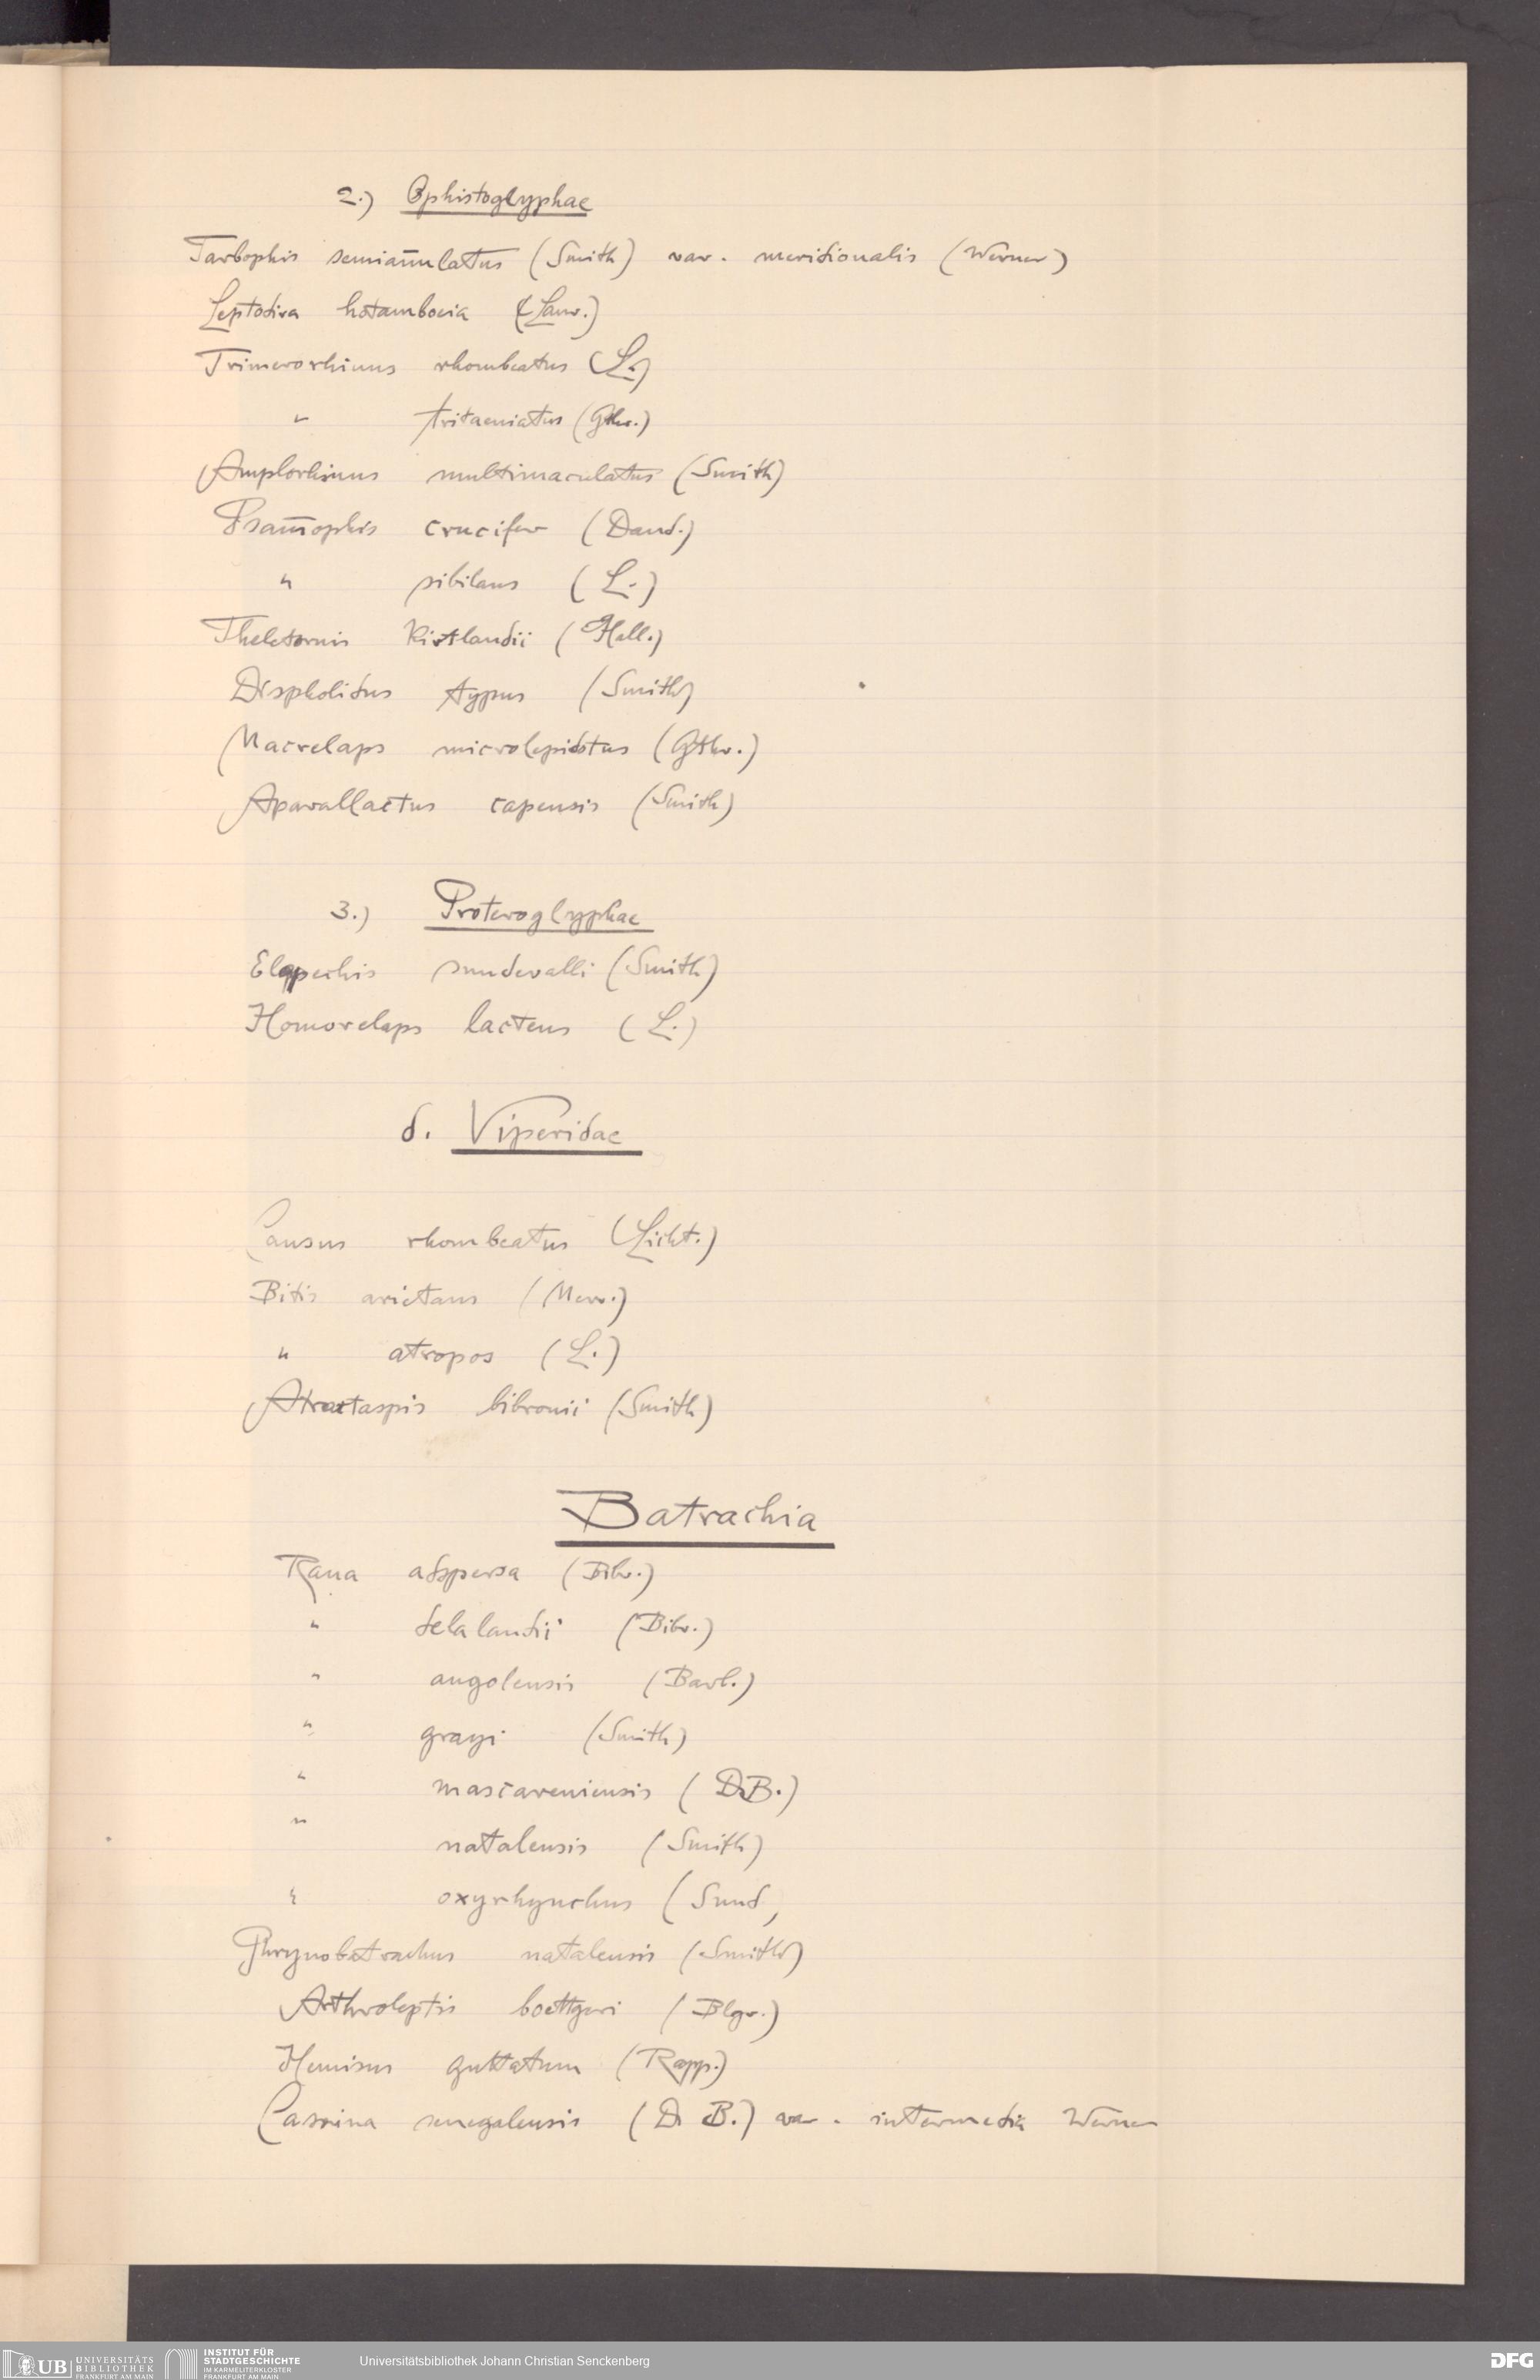 2.) Ophistoglyphae
Tarbophis semian̄ulatus (Smith) var. meridionalis (Werner)
Leptodira hotamboeia (Laur.)
Trimerorhinus rhombeatus (L.)
" tritaeniatus (Gthr.)
Amplorhinus multimaculatus (Smith)
Psam̄ophis crucifer (Daud.)
" sibilans (L.)
Theletornis Kirtlandii (Hall.)
Dispholidus typus (Smith)
Macrelaps microlepidotus (Gthr.)
Aparallactus capensis (Smith)
3.) Proteroglyphae
Elapechis sundevalli (Smith)
Homorelaps lacteus (L.)
d. Viperidae
Causus rhombeatus (Licht.)
Bitis arietans (Merr.)
" atropos (L.)
Atractaspis bibronii (Smith)
Batrachia
Rana adspersa (Bibr.)
" delalandii (Bibr.)
" angolensis (Barb.)
" grayi (Smith)
" mascareniensis (D.B.)
" natalensis (Smith)
" oxyrhynchus (Sund,
Phrynobatrachus natalensis (Smith)
Arthroleptis boettgeri (Blgr.)
Hemisus guttatum (Rapp.)
Cassina senegalensis (D. B.) var. intermedia Werner
UB UNIVERSITÄTS BIBLIOTHEK FRANKFURT AM MAIN
INSTITUT FÜR STADTGESCHICHTE IM KARMELITERKLOSTER FRANKFURT AM MAIN
Universitätsbibliothek Johann Christian Senckenberg
DFG